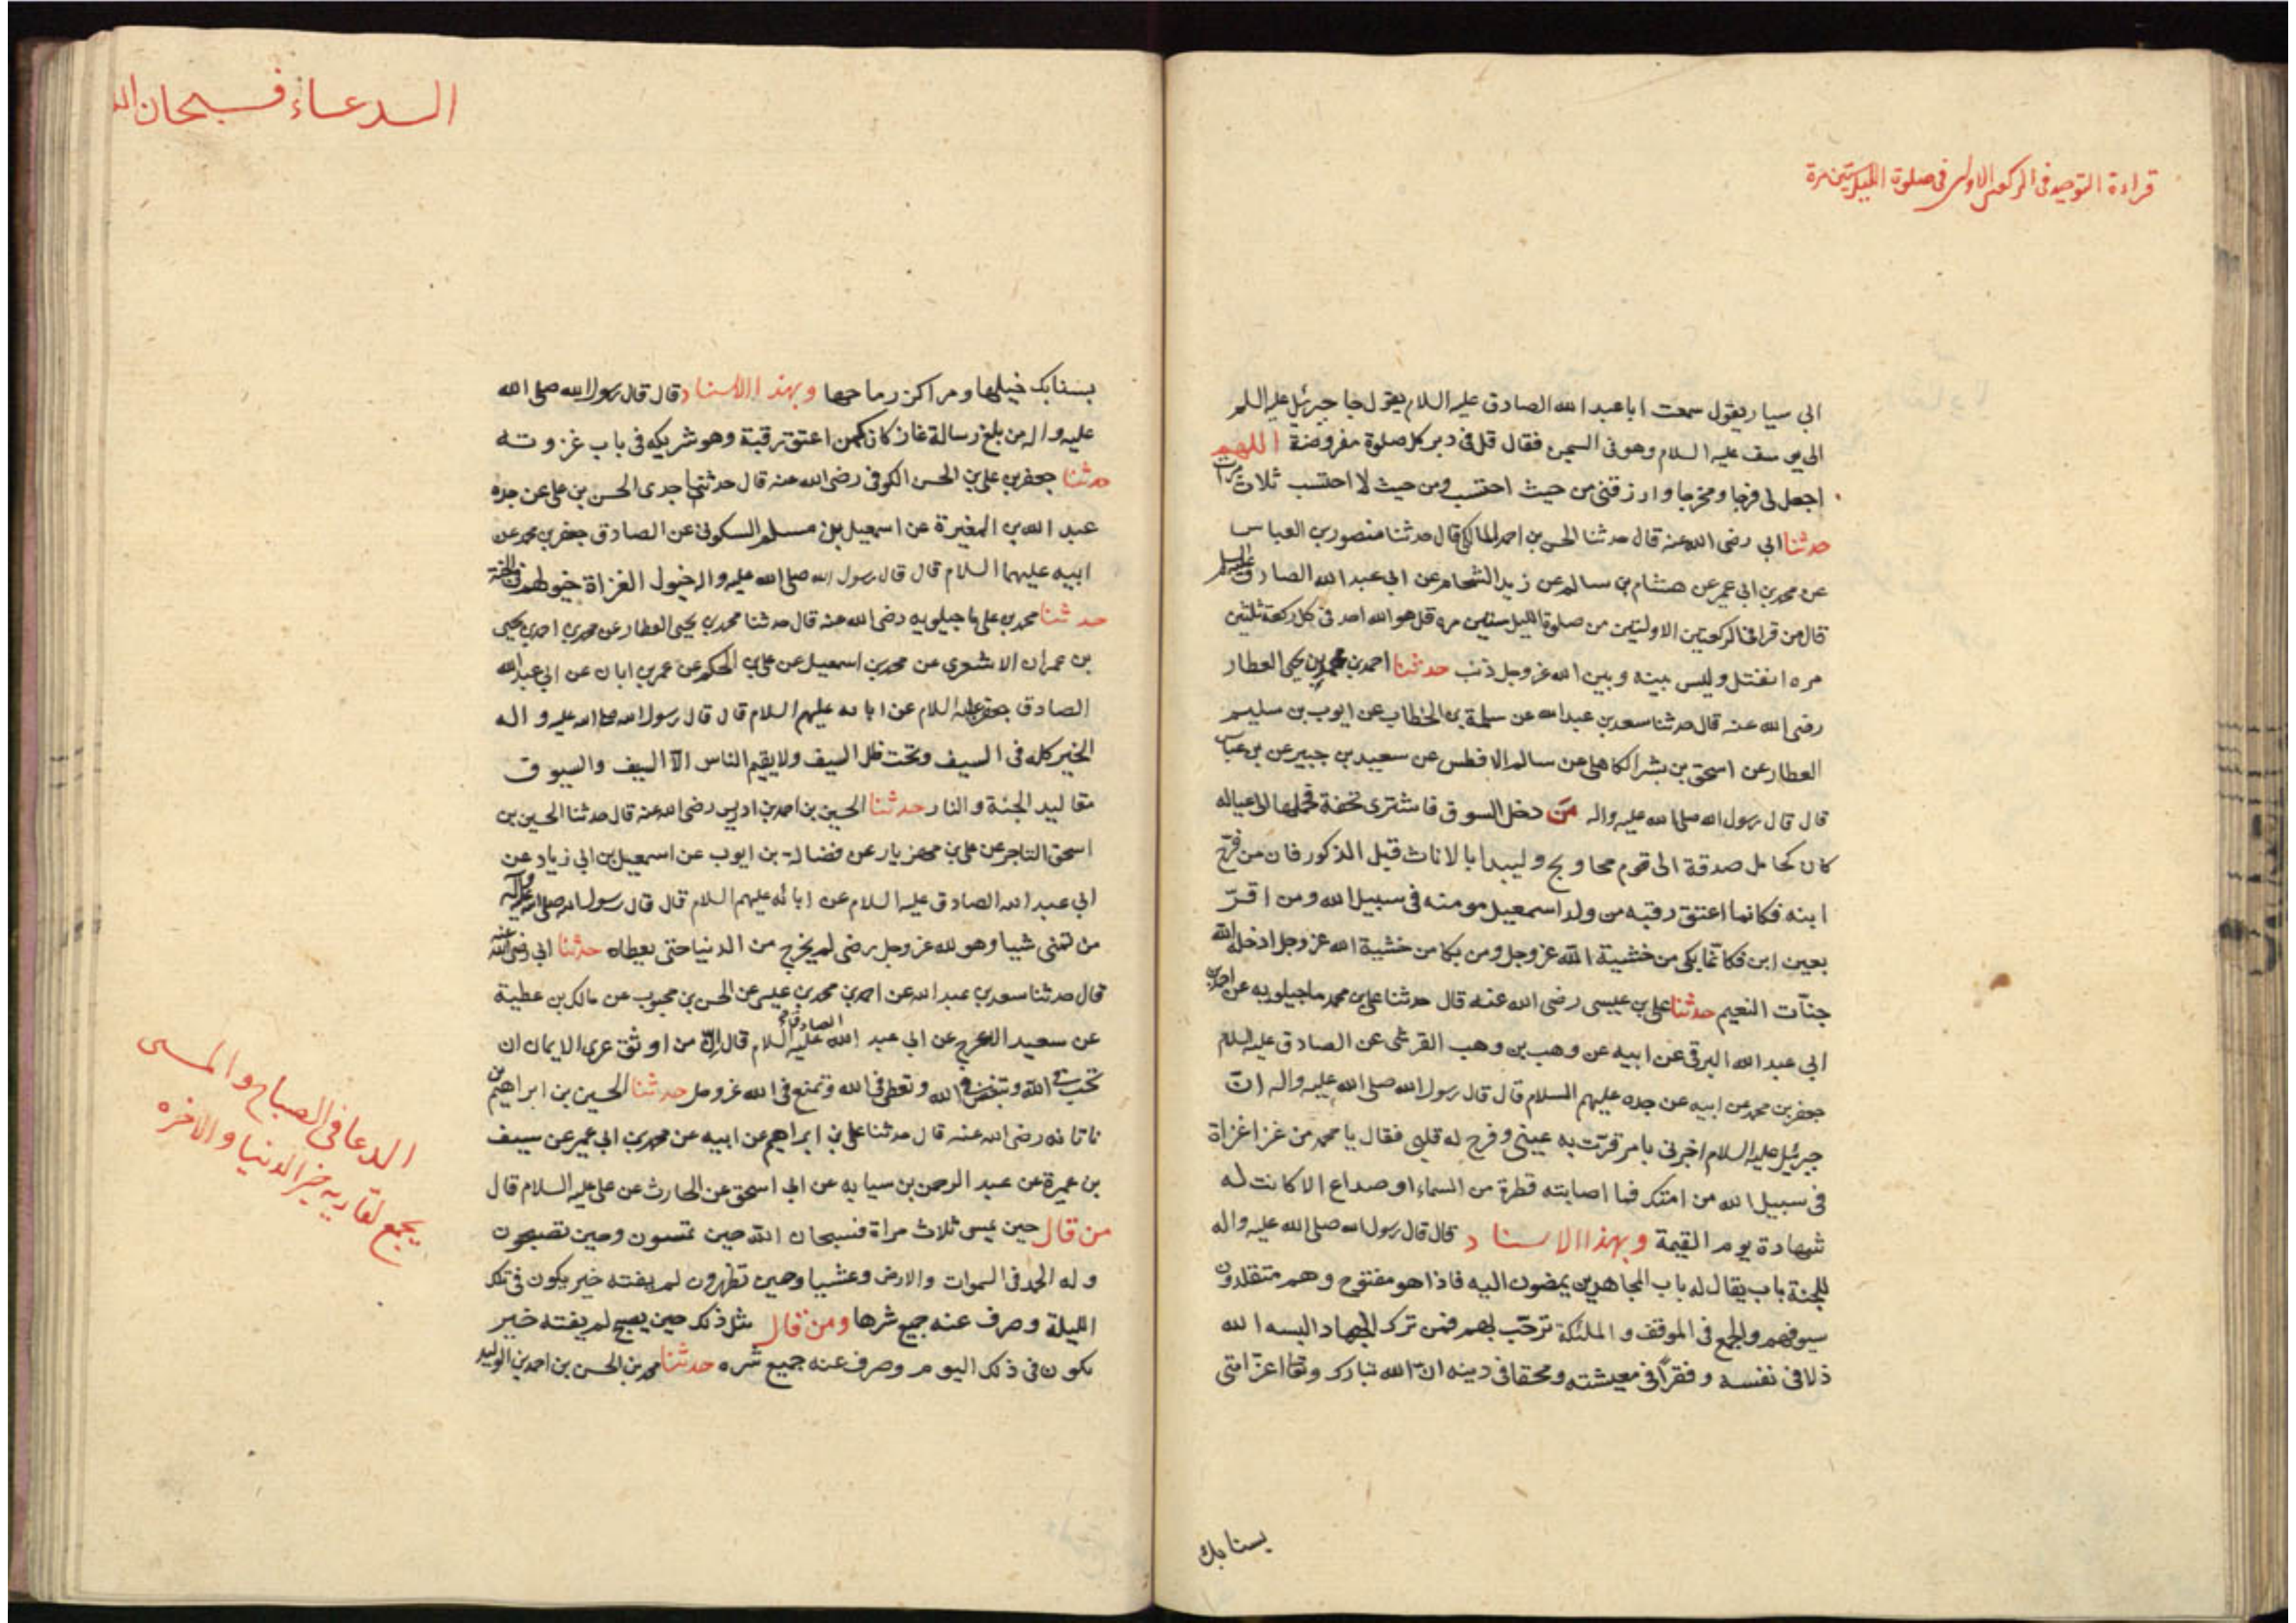 قراءة التوحيد فى الركعتى الاولى فى صلوة الليل ستين مرة
ابى سيار يقول سمعت ابا عبد الله الصادق عليه السلام يقول جا جبرئيل عليه السلم
الى يوسف عليه السلام وهو فى السجن فقال قل فى دبر كل صلوة مفروضة اللهم
اجعل لى فرجا ومخرجا وارزقنى من حيث احتسب ومن حيث لا احتسب ثلاث مرات
حدثنا ابى رضى الله عنه قال حدثنا الحسن بن احمد المالكى قال حدثنا منصور بن العباس
عن محمد بن ابى عمير عن هشام بن سالم عن زيد الشحام عن ابى عبد الله الصادق عليه السلم
قال من قرا فى الركعتين الاولتين من صلوة الليل ستين مره قل هو الله احد فى كل ركعة ثلثين
مره انفتل وليس بينه وبين الله عز وجل ذنب حدثنا احمد بن محمد بن يحيى العطار
رضى الله عنه قال حدثنا سعد بن عبد الله عن سلمة بن الخطاب عن ايوب بن سليم
العطار عن اسحق بن بشر الكاهلى عن سالم الافطس عن سعيد بن جبير عن بن عباس
قال قال رسول الله صلى الله عليه واله من دخل السوق فاشترى تحفة فحملها الى عياله
كان كحامل صدقة الى قوم محاويج وليبدا بالاناث قبل الذكور فان من فرح
ابنه فكانما اعتق رقبه من ولد اسمعيل مومنه فى سبيل الله ومن اقرّ
بعين ابن فكانما بكى من خشية الله عز وجل ومن بكا من خشية الله عز وجل ادخله الله
جنآت النعيم حدثنا على بن عيسى رضى الله عنه قال حدثنا على بن محمد ماجيلويه عن احمد بن
ابى عبد الله البرقى عن ابيه عن وهب بن وهب القرشى عن الصادق عليه السلام
جعفر بن محمد عن ابيه عن جده عليهم السلام قال قال رسول الله صلى الله عليه واله ان
جبرئيل عليه السلام اخبرنى بامر قرّت به عينى وفرح له قلبى فقال يا محمد من غزا غزاة
فى سبيل الله من امتك فما اصابته قطرة من السماء او صداع الا كانت له
شهادة يوم القيمة وبهذا الاسناد قال قال رسول الله صلى الله عليه واله
للجنة باب يقال له باب المجاهدين يمضون اليه فاذا هو مفتوح وهم متقلدون
سيوفهم والجمع فى الموقف و الملئكة ترحّب بهم فمن ترك الجهاد البسه الله
ذلا فى نفسه و فقرا فى معيشته ومحقا فى دينه انّ الله تبارك وتعا اعزّ امتى
بسنابك
الدعاء فسبحان الله
بسنابك خيلها ومراكز رماحها وبهذا الاسناد قال قال رسول الله صلى الله
عليه واله من بلغ رسالة غاز كان كمن اعتق رقبة وهو شريكه فى باب غزوته
حدثنا جعفر بن على بن الحسن الكوفى رضى الله عنه قال حدثنى جدى الحسن بن على عن جده
عبد الله بن المغيرة عن اسمعيل بن مسلم السكونى عن الصادق جعفر بن محمد عن
ابيه عليهما السلام قال قال رسول الله صلى الله عليه واله خيول الغزاة خيولهم فى الجنة
حدثنا محمد بن على ماجيلويه رضى الله عنه قال حدثنا محمد بن يحيى العطار عن محمد بن احمد بن يحيى
بن عمران الاشعرى عن محمد بن اسمعيل عن على بن الحكم عن عمر بن ابان عن ابى عبد الله
الصادق جعفر عليه السلام عن ابائه عليهم السلام قال قال رسول الله صلى الله عليه واله
الخير كله فى السيف وتحت ظل السيف ولا يقيم الناس الّا السيف والسيوف
مقاليد الجنة والنار حدثنا الحسين بن احمد بن ادريس رضى الله عنه قال حدثنا الحسين بن
اسحق التاجر عن على بن مهزيار عن فضالة بن ايوب عن اسمعيل بن ابى زياد عن
ابى عبد الله الصادق عليه السلام عن ابائه عليهم السلام قال قال رسول الله صلى الله عليه وآله
من تمنى شيا وهو لله عز وجل رضى لم يخرج من الدنيا حتى يعطاه حدثنا ابى رضى الله عنه
قال حدثنا سعد بن عبد الله عن احمد بن محمد بن عيسى عن الحسن بن محبوب عن مالك بن عطية
عن سعيد الاعرج عن ابى عبد الله الصادق عليه السلام قال انّ من اوثق عرى الايمان ان
تحب فى الله وتبغض فى الله وتعطى فى الله وتمنع فى الله عز وجل حدثنا الحسين بن ابراهيم بن
ناتانه رضى الله عنه قال حدثنا على بن ابراهيم عن ابيه عن محمد بن ابى عمير عن سيف
بن عميرة عن عبد الرحمن بن سيابه عن ابى اسحق عن الحارث عن على عليه السلام قال
من قال حين يمسى ثلاث مراة فسبحان الله حين تمسون وحين تصبحون
وله الحمد فى السموات والارض وعشيا وحين تظهرون لم يفته خير يكون فى تلك
الليلة وصرف عنه جميع شرها ومن قال مثل ذلك حين يصبح لم يفته خير
يكون فى ذلك اليوم وصرف عنه جميع شره حدثنا محمد بن الحسن بن احمد بن الوليد
الدعا فى الصباح والمسى
يجمع لقاريه خير الدنيا والاخره